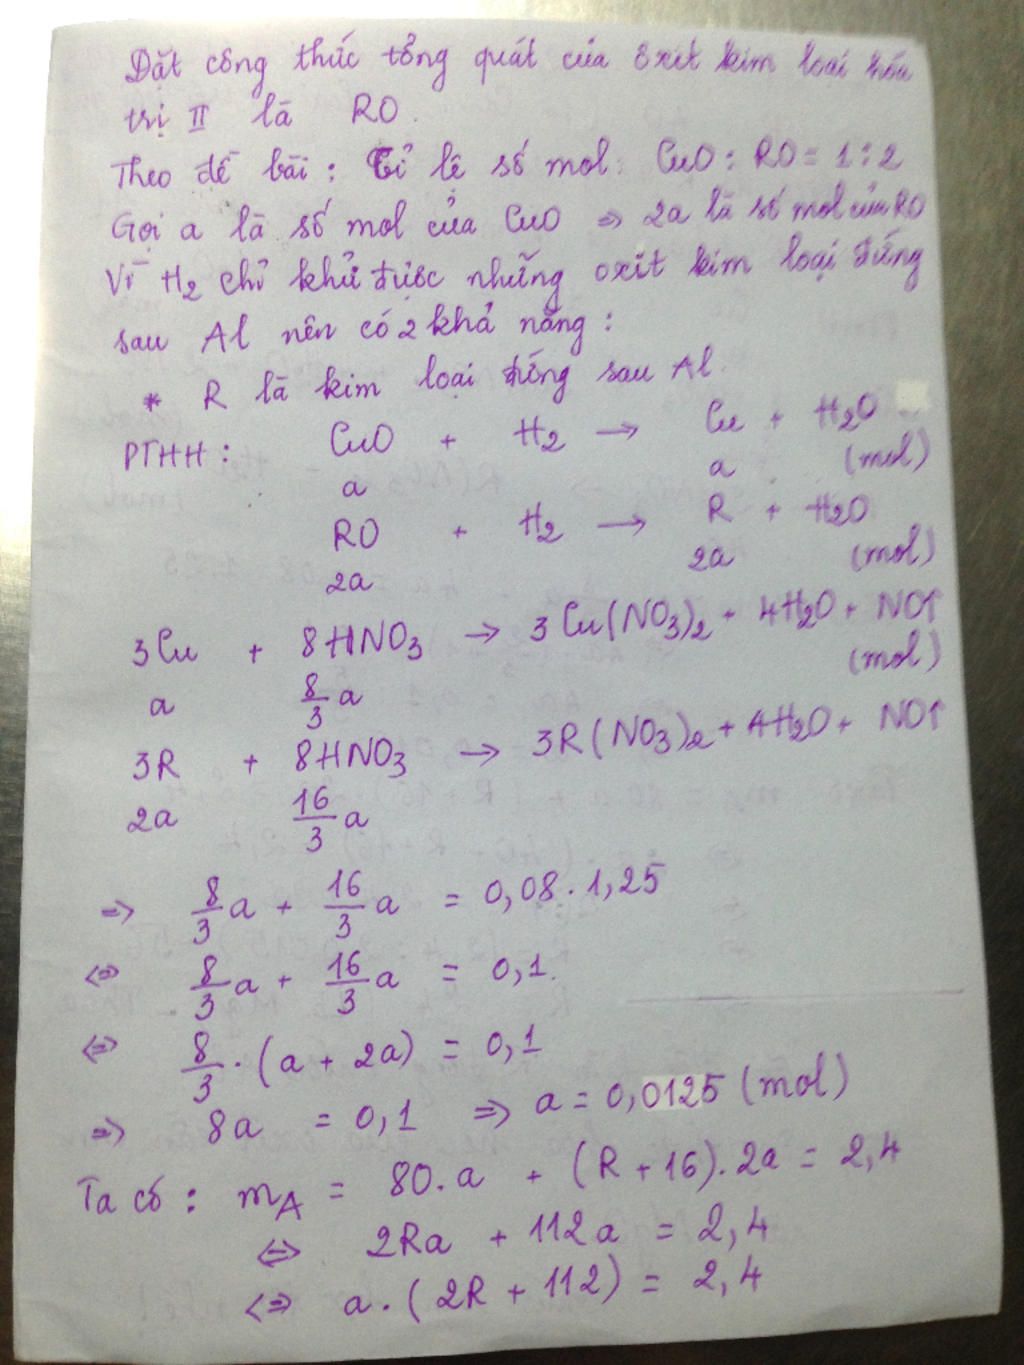 Đặt công thức tổng quát của oxit kim loại hóa
trị II là RO.
Theo đề bài: Tỉ lệ số mol: CuO : RO = 1 : 2
Gọi a là số mol của CuO => 2a là số mol của RO
Vì H2 chỉ khử được những oxit kim loại đứng
sau Al nên có 2 khả năng:
* R là kim loại đứng sau Al.
PTHH: CuO + H2 → Cu + H2O
a a (mol)
RO + H2 → R + H2O
2a 2a (mol)
3Cu + 8HNO3 → 3Cu(NO3)2 + 4H2O + NO↑
a 8/3 a (mol)
3R + 8HNO3 → 3R(NO3)2 + 4H2O + NO↑
2a 16/3 a
=> 8/3 a + 16/3 a = 0,08 . 1,25
<=> 8/3 a + 16/3 a = 0,1.
<=> 8/3 . (a + 2a) = 0,1
=> 8a = 0,1 => a = 0,0125 (mol)
Ta có: mA = 80.a + (R + 16).2a = 2,4
<=> 2Ra + 112a = 2,4
<=> a.(2R + 112) = 2,4